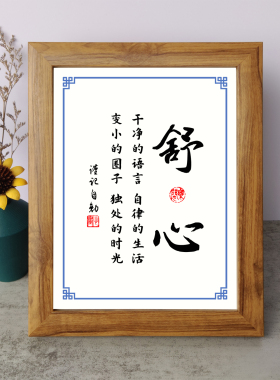 舒心
干净的语言 自律的生活
变小的圈子 独处的时光
谨记自勉